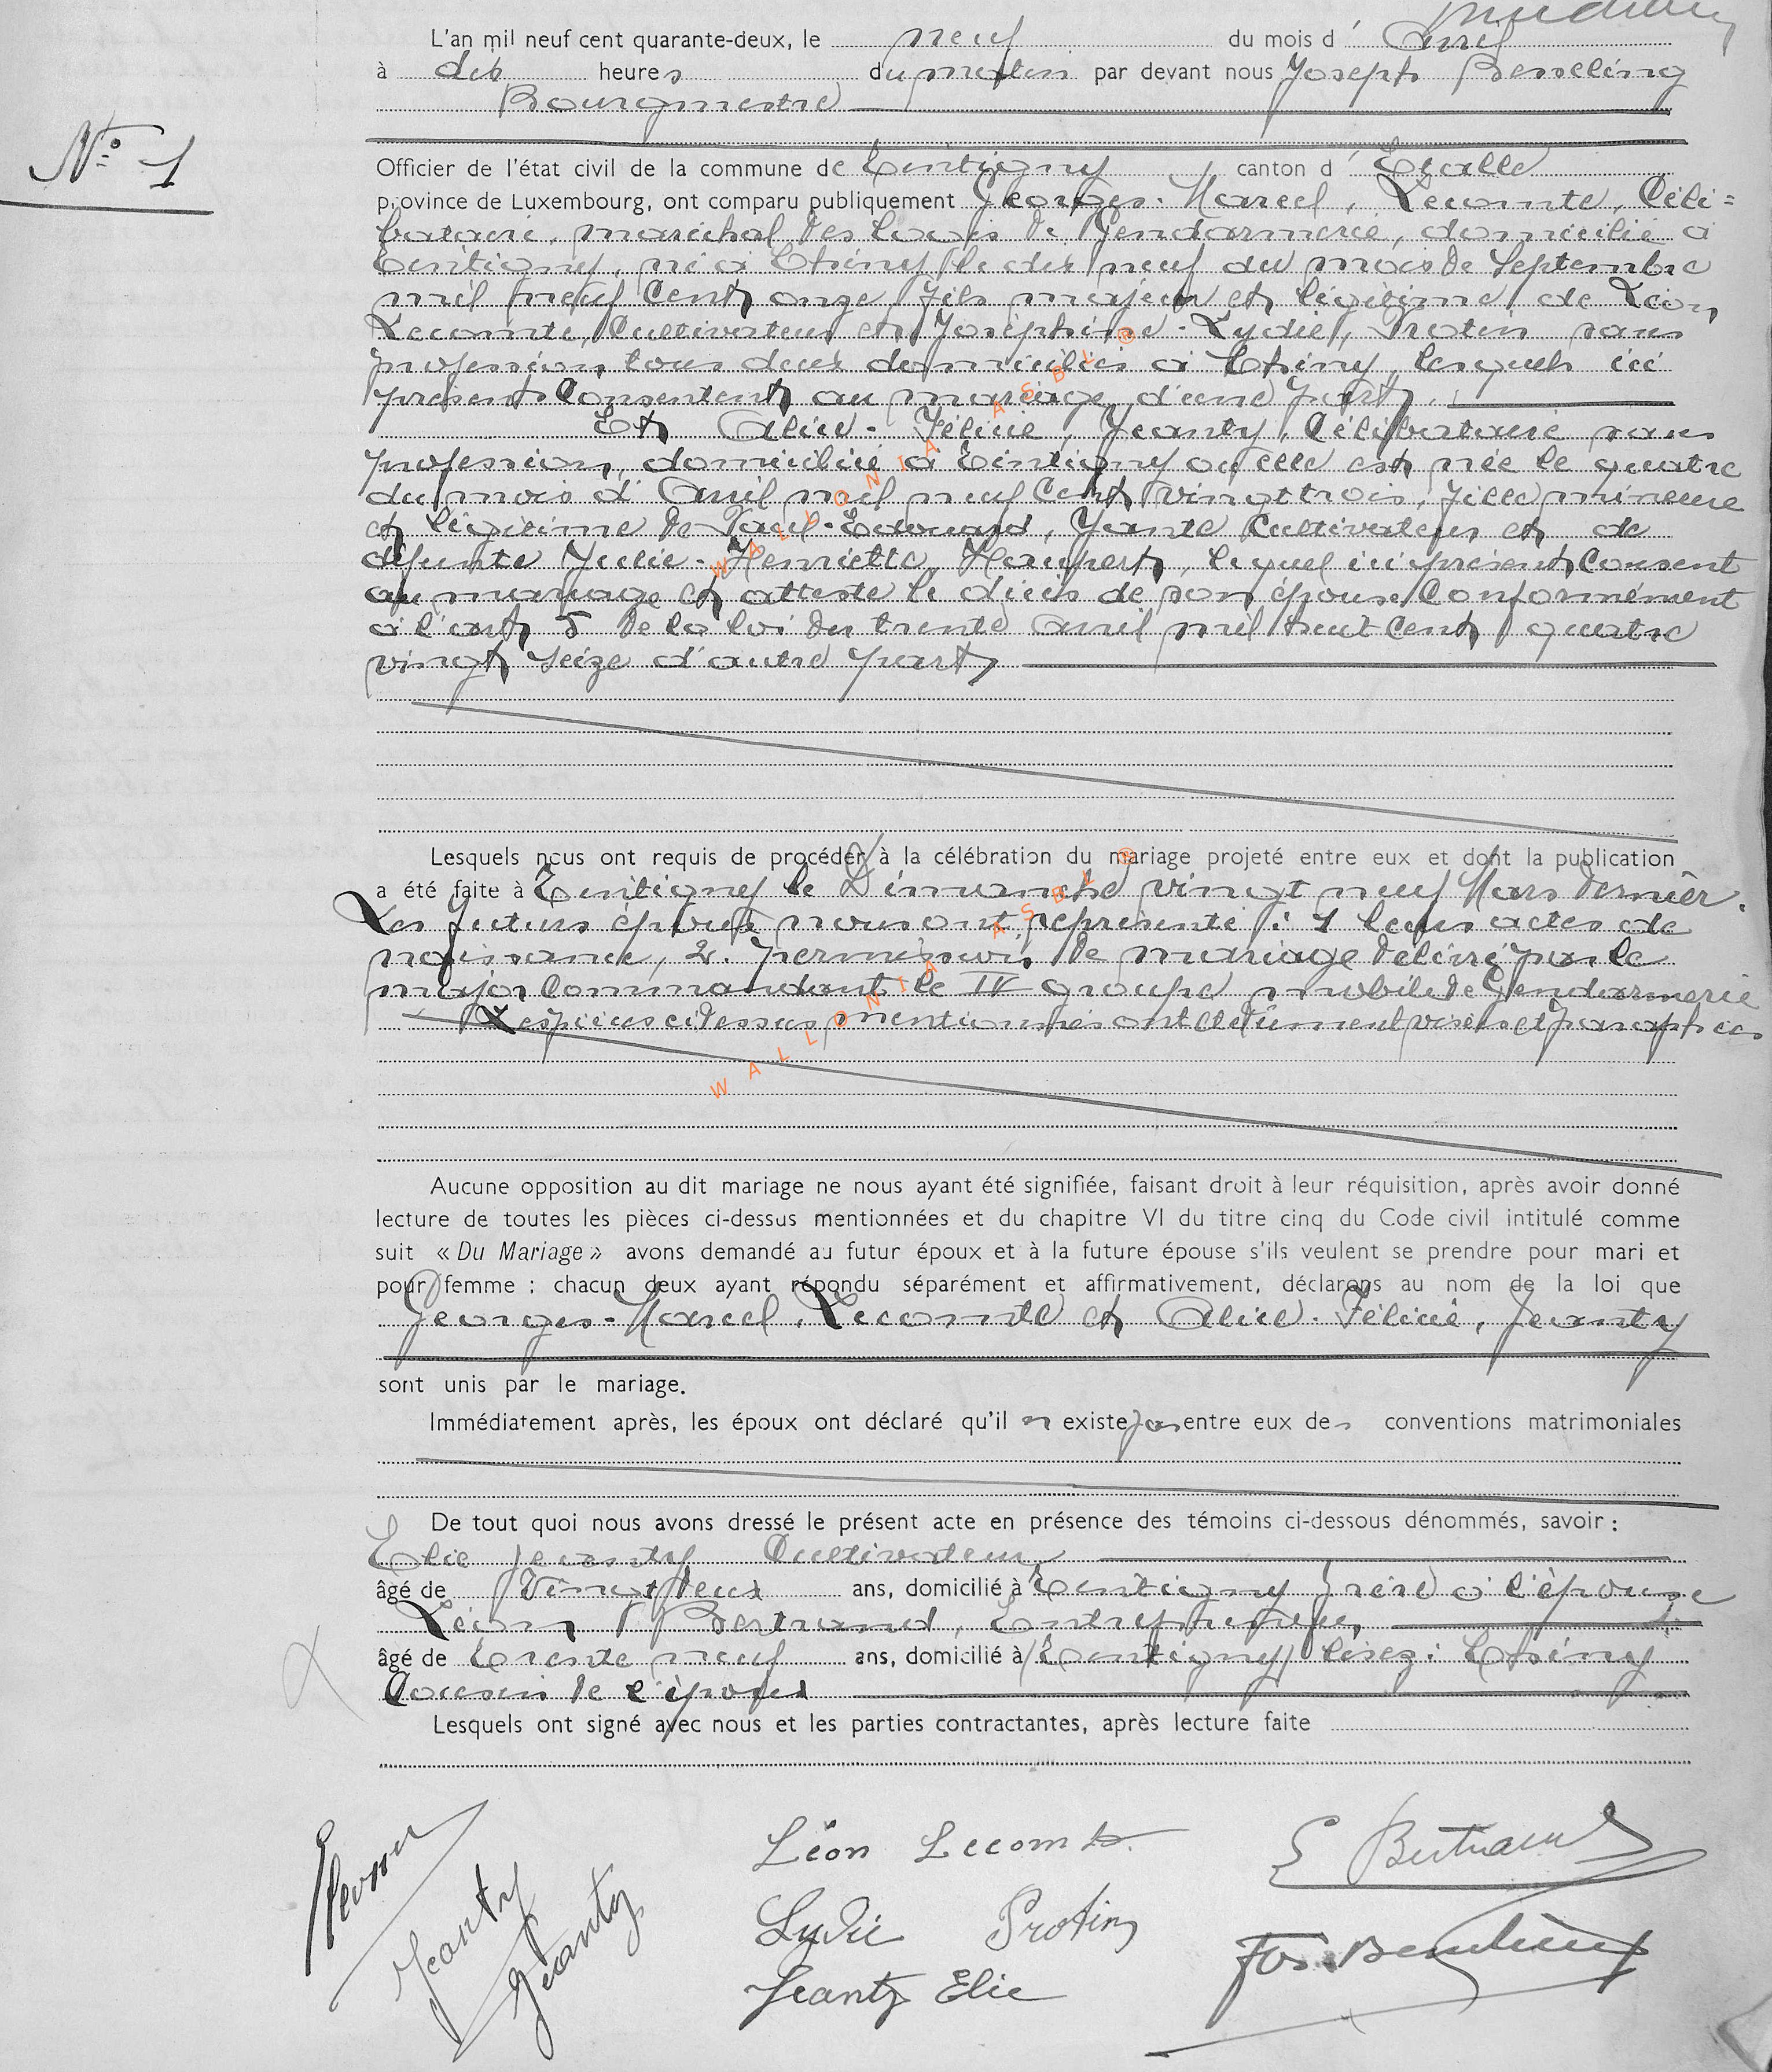 L'an mil neuf cent quarante-deux, le neuf du mois d' Avril
à dix heures du matin par devant nous Joseph Besseling
Bourgmestre
N° 1
Officier de l'état civil de la commune de Tintigny canton d' Etalle
province de Luxembourg, ont comparu publiquement Georges-Marcel, Lecomte, Céli=
bataire, maréchal des logis de Gendarmerie, domicilié à
Tintigny, né à Chiny le dix neuf du mois de Septembre
mil neuf cent onze, fils majeur et légitime de Léon
Lecomte, Cultivateur et Joséphine-Lydie, Protin sans
profession tous deux domiciliés à Chiny, lesquels ici
présents consentent au mariage, d'une part.
Et Alice-Félicie, Jeanty, Célibataire sans
profession, domiciliée à Tintigny où elle est née le quatre
du mois d'Avril mil neuf cent vingt trois, fille mineure
et légitime de Paul-Edouard, Jeanty Cultivateur et de
défunte Julie-Henriette, Haupert, lequel ici présent consent
au mariage et atteste le décès de son épouse Conformément
à l'art 5 de la loi du trente Avril mil huit cent quatre
vingt seize d'autre part
Lesquels nous ont requis de procéder à la célébration du mariage projeté entre eux et dont la publication
a été faite à Tintigny le Dimanche vingt neuf Mars dernier.
Les futurs époux nous ont représenté : 1 leurs actes de
naissance, 2. permission de mariage délivré par le
major Commandant le IV groupe mobile de Gendarmerie
Les pièces ci dessus mentionnées ont été dûment visées et paraphées
Aucune opposition au dit mariage ne nous ayant été signifiée, faisant droit à leur réquisition, après avoir donné
lecture de toutes les pièces ci-dessus mentionnées et du chapitre VI du titre cinq du Code civil intitulé comme
suit « Du Mariage » avons demandé au futur époux et à la future épouse s'ils veulent se prendre pour mari et
pour femme : chacun deux ayant répondu séparément et affirmativement, déclarons au nom de la loi que
Georges-Marcel, Lecomte et Alice-Félicie, Jeanty
sont unis par le mariage.
Immédiatement après, les époux ont déclaré qu'il n existe pas entre eux des conventions matrimoniales
De tout quoi nous avons dressé le présent acte en présence des témoins ci-dessous dénommés, savoir :
Elie Jeanty Cultivateur
âgé de Vingt deux ans, domicilié à Tintigny frère à l'épouse
Léon Bertrand, Entrepreneur
âgé de Trente neuf ans, domicilié à Tintigny lisez : Chiny
Cousin de l'époux
Lesquels ont signé avec nous et les parties contractantes, après lecture faite
Jeanty
Jeanty
Léon Lecomte
Lydie Protin
Jeanty Elie
Bertrand
Jos. Besseling
W A L L O N I A A S B L ®
W A L L O N I A A S B L ®